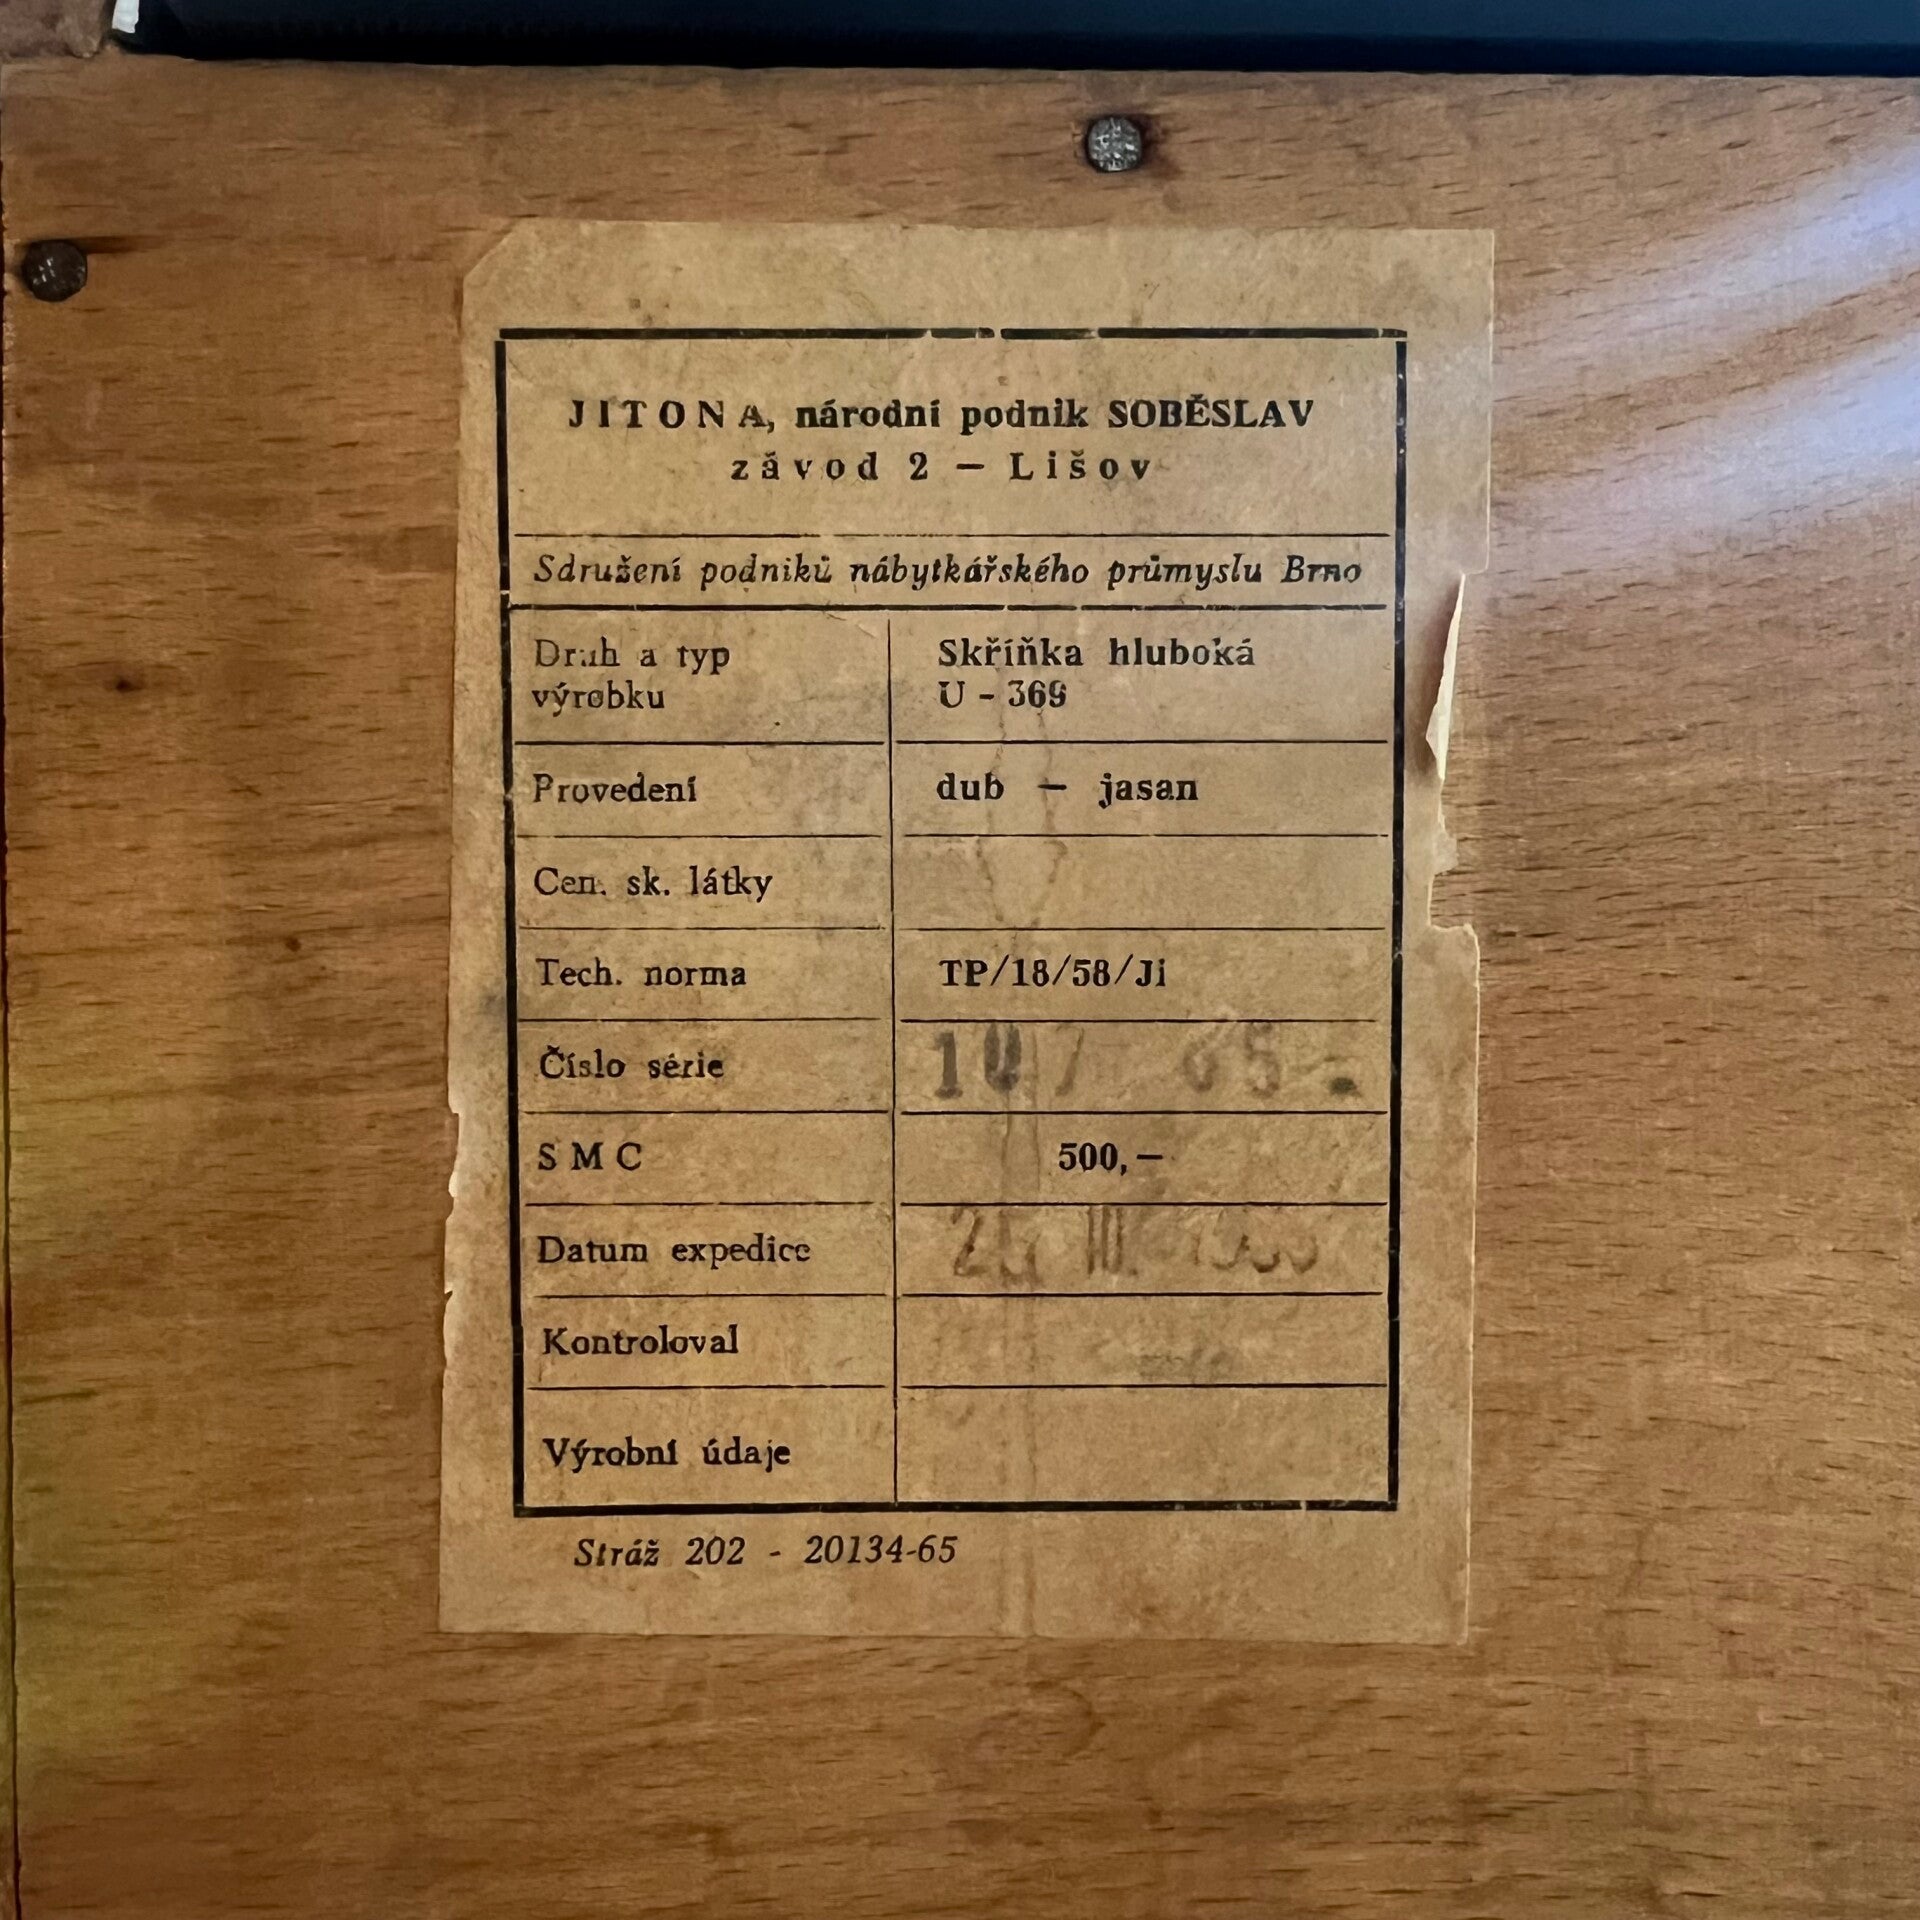 JITONA, národní podnik SOBĚSLAV
závod 2 — Lišov
Sdružení podniků nábytkářského průmyslu Brno
Druh a typ výrobku
Skříňka hluboká
U - 369
Provedení dub — jasan
Cen. sk. látky
Tech. norma TP/18/58/Ji
Číslo série 107 65
S M C 500,—
Datum expedice III.
Kontroloval
Výrobní údaje
Stráž 202 - 20134-65